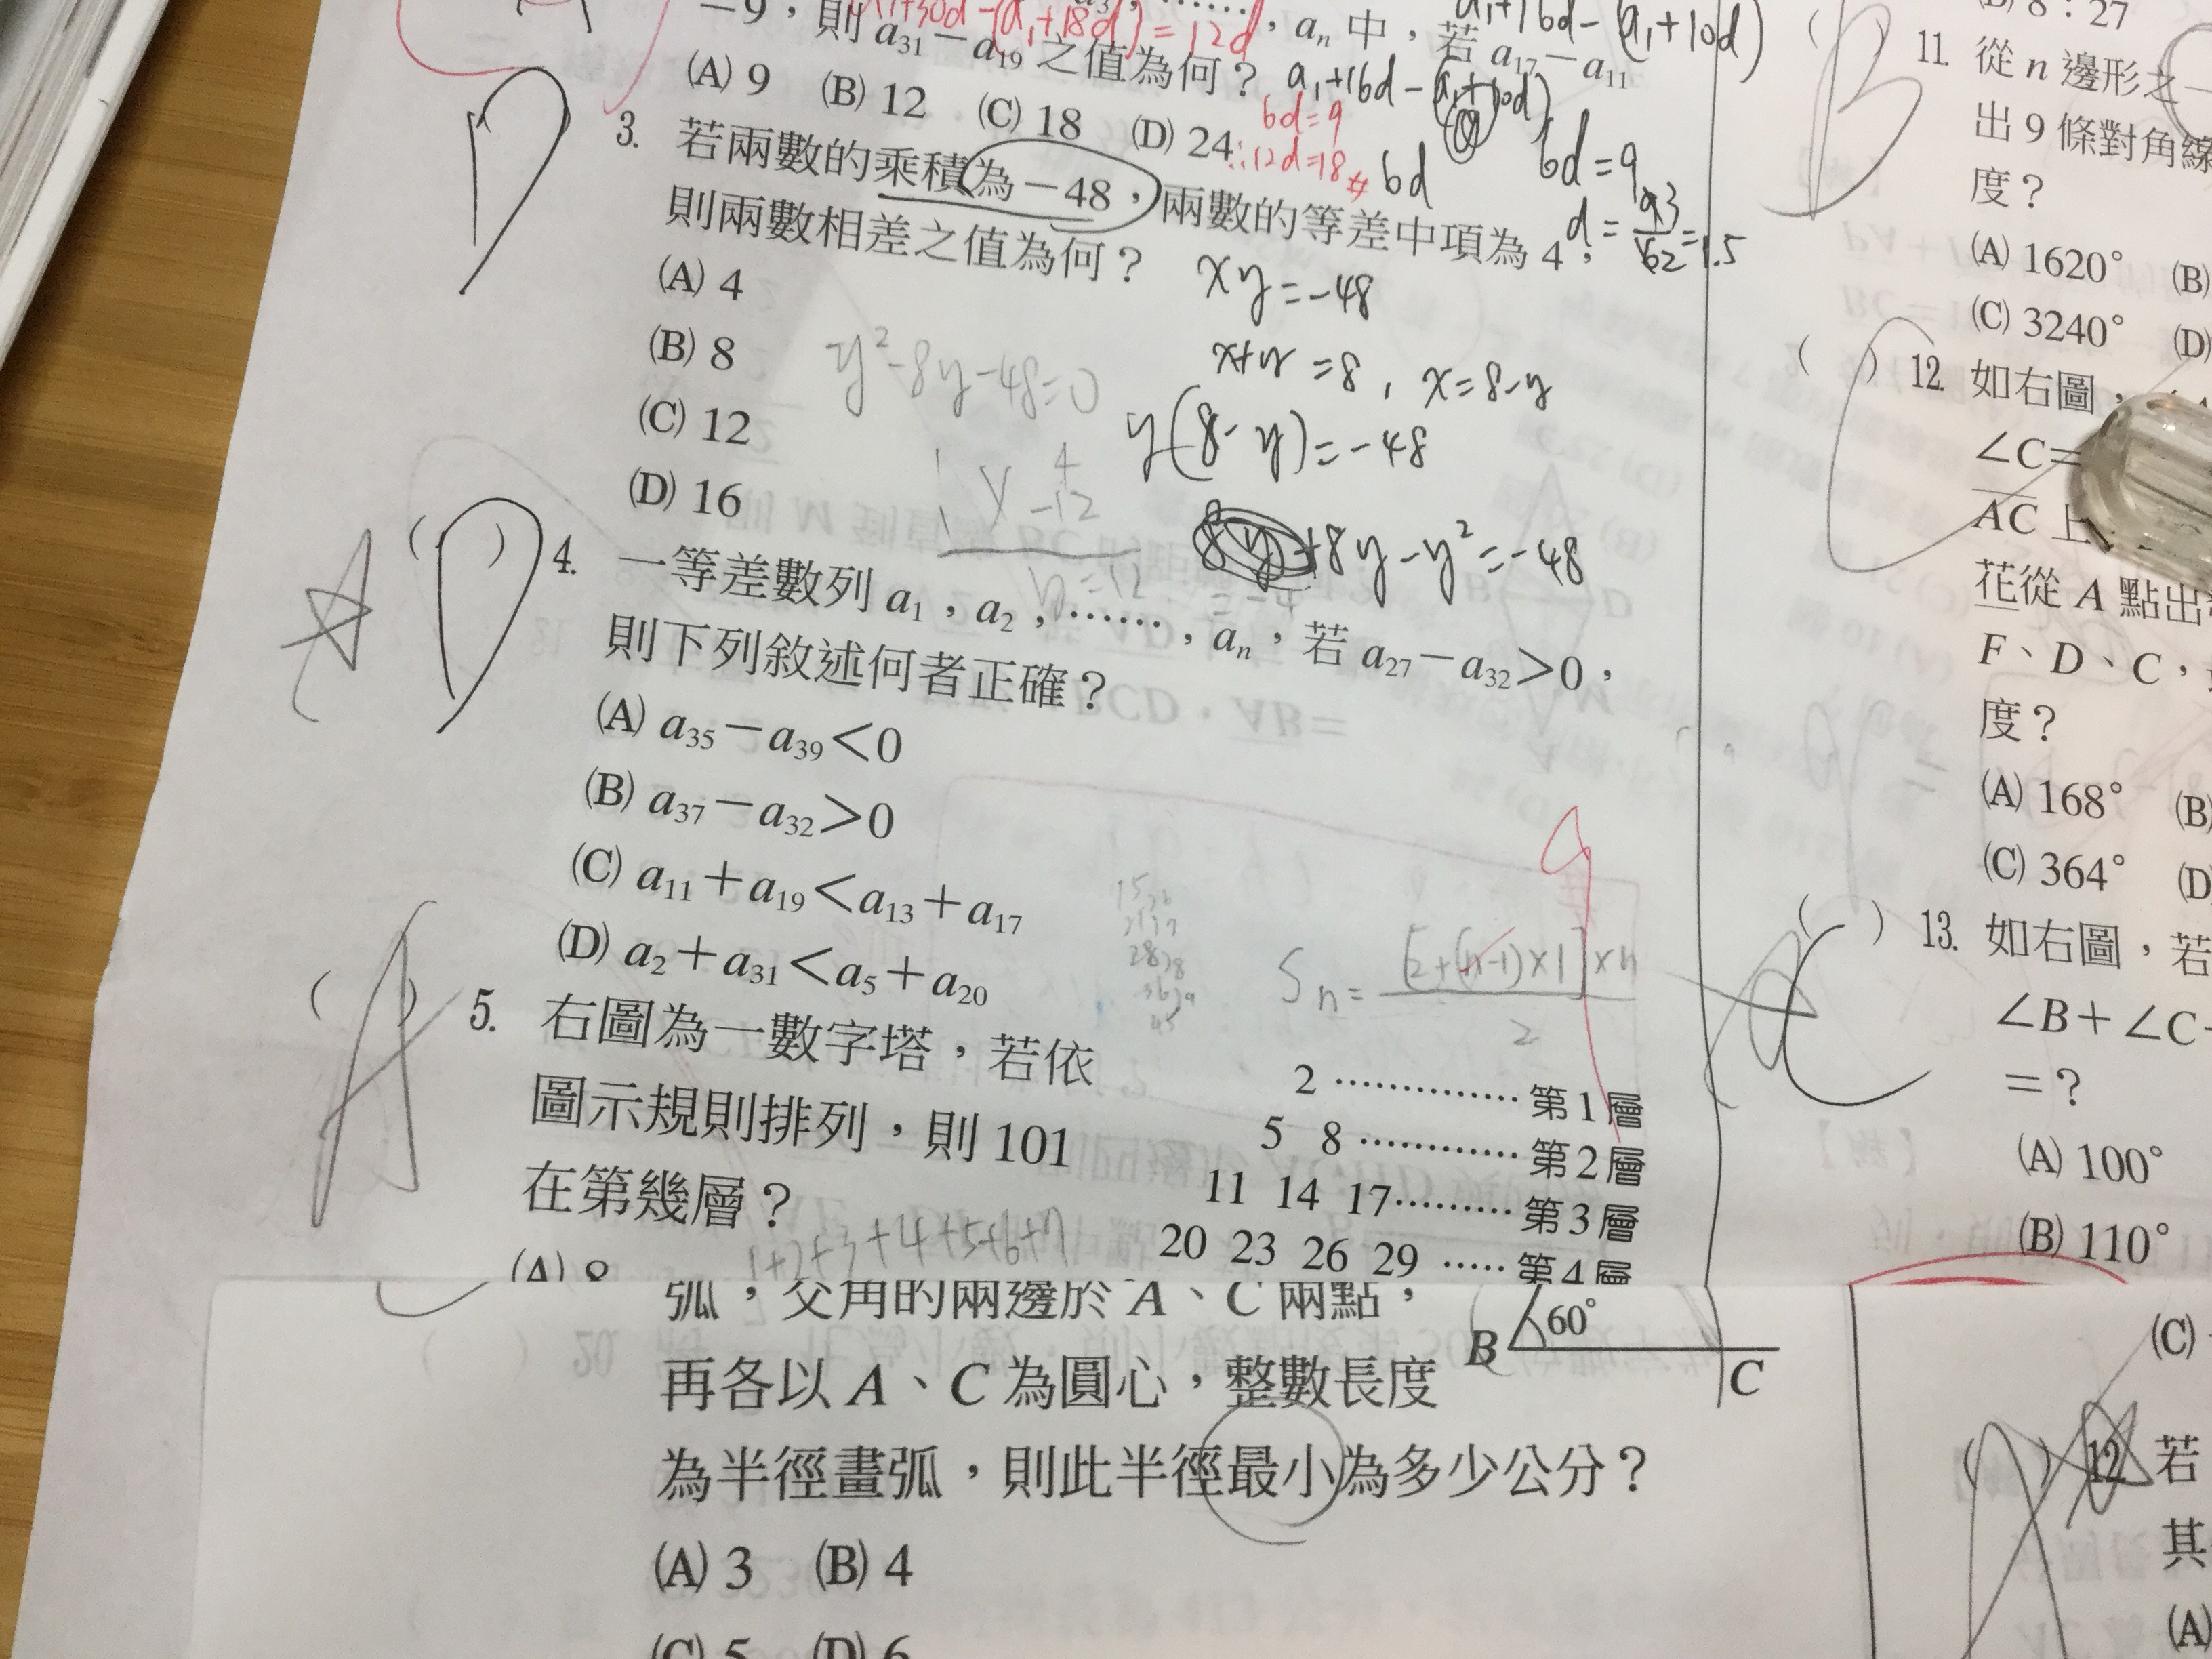 −9，則 a31−a19 之值為何？
an 中，若 a17−a11
a1+30d−(a1+18d)=12d
a1+16d−(a1+10d)
(A) 9 (B) 12 (C) 18 (D) 24
a1+16d−(a1+10d)
6d=9
∴12d=18
6d
6d=9
D
3. 若兩數的乘積為−48，兩數的等差中項為 4，
則兩數相差之值為何？
(A) 4
(B) 8
(C) 12
(D) 16
xy=−48
x+y=8，x=8−y
y(8−y)=−48
8y−y²=−48
y²−8y−48=0
4
−12
D
( ) 4. 一等差數列 a1，a2，……，an，若 a27−a32>0，
則下列敘述何者正確？
(A) a35−a39<0
(B) a37−a32>0
(C) a11+a19<a13+a17
(D) a2+a31<a5+a20
Sn= [2+(n−1)×1]×n
2
A
( ) 5. 右圖為一數字塔，若依
圖示規則排列，則 101
在第幾層？
(A) 8
1+2+3+4+5+6+7
2 ………… 第 1 層
5 8 ………… 第 2 層
11 14 17 ……… 第 3 層
20 23 26 29 …… 第 4 層
弧，交角的兩邊於 A、C 兩點，
再各以 A、C 為圓心，整數長度
為半徑畫弧，則此半徑最小為多少公分？
(A) 3 (B) 4
(C) 5 (D) 6
B 60° C
8：27
B
( ) 11. 從 n 邊形之一
出 9 條對角線
度？
(A) 1620° (B)
(C) 3240° (D)
( ) 12. 如右圖，
∠C=
AC 上
花從 A 點出
F、D、C，
度？
(A) 168° (B)
(C) 364° (D)
C
( ) 13. 如右圖，若
∠B+∠C
=？
(A) 100°
(B) 110°
(C)
( ) 12 若
其
(A)